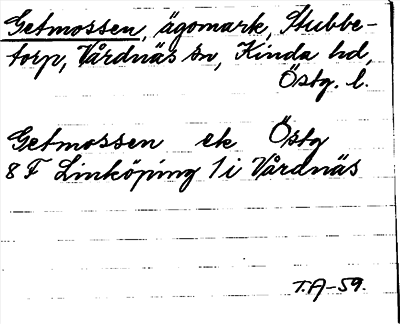 Getmossen, ägomark, Stubbe-
torp, Vårdnäs sn, Kinda hd,
Östg. l.
Getmossen ek Östg
8 F Linköping 1 i Vårdnäs
T.A-59.